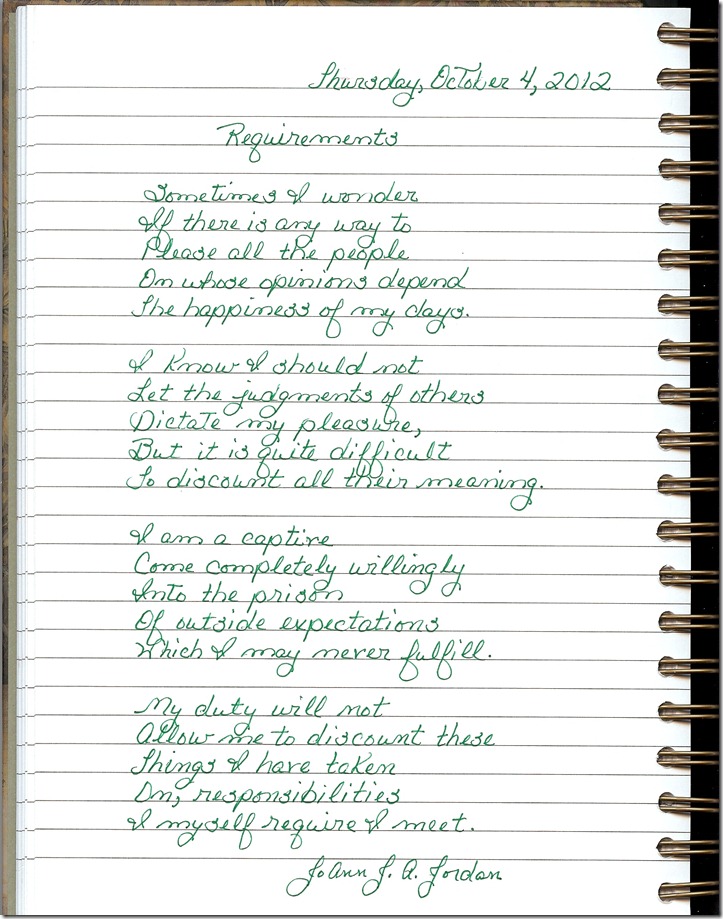 Thursday, October 4, 2012
Requirements
Sometimes I wonder
If there is any way to
Please all the people
On whose opinions depend
The happiness of my days.
I know I should not
Let the judgments of others
Dictate my pleasure,
But it is quite difficult
To discount all their meaning.
I am a captive
Come completely willingly
Into the prison
Of outside expectations
Which I may never fulfill.
My duty will not
Allow me to discount these
Things I have taken
On, responsibilities
I myself require I meet.
JoAnn J. A. Jordan